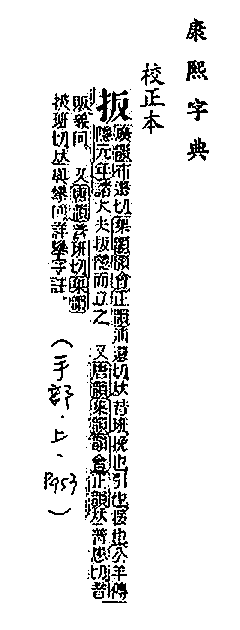 康熙字典
校正本
扳
廣韻布還切集韻韻會正韻逋還切𠀤音班挽也引也援也公羊傳
隱元年諸大夫扳隱而立之 又唐韻集韻韻會正韻𠀤普患切音
販義同 又廣韻普班切集韻
披班切𠀤與攀同詳攀字註
(手部·上·P953)